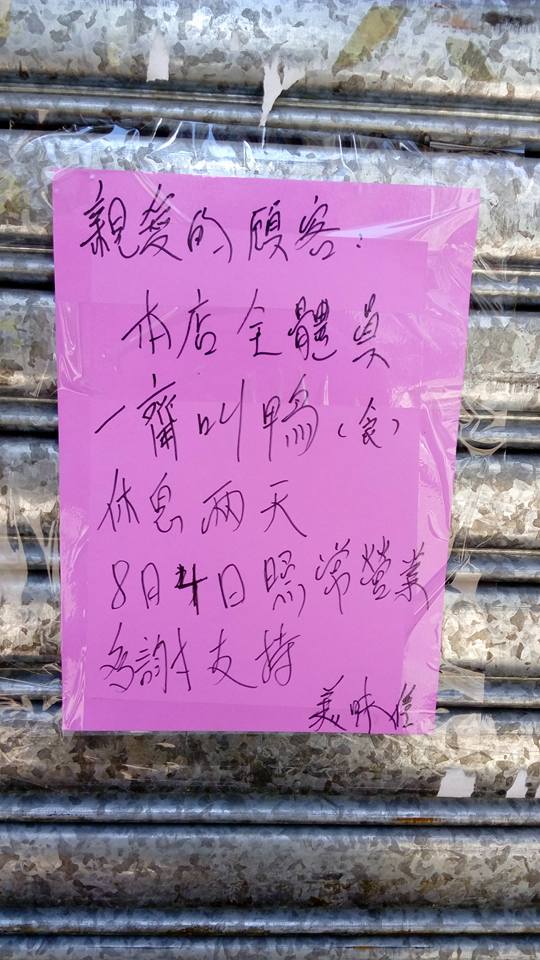 親愛的顧客:
本店全體員
一齊叫鴨(食)
休息兩天
8月4日照常營業
多謝支持
美味佳